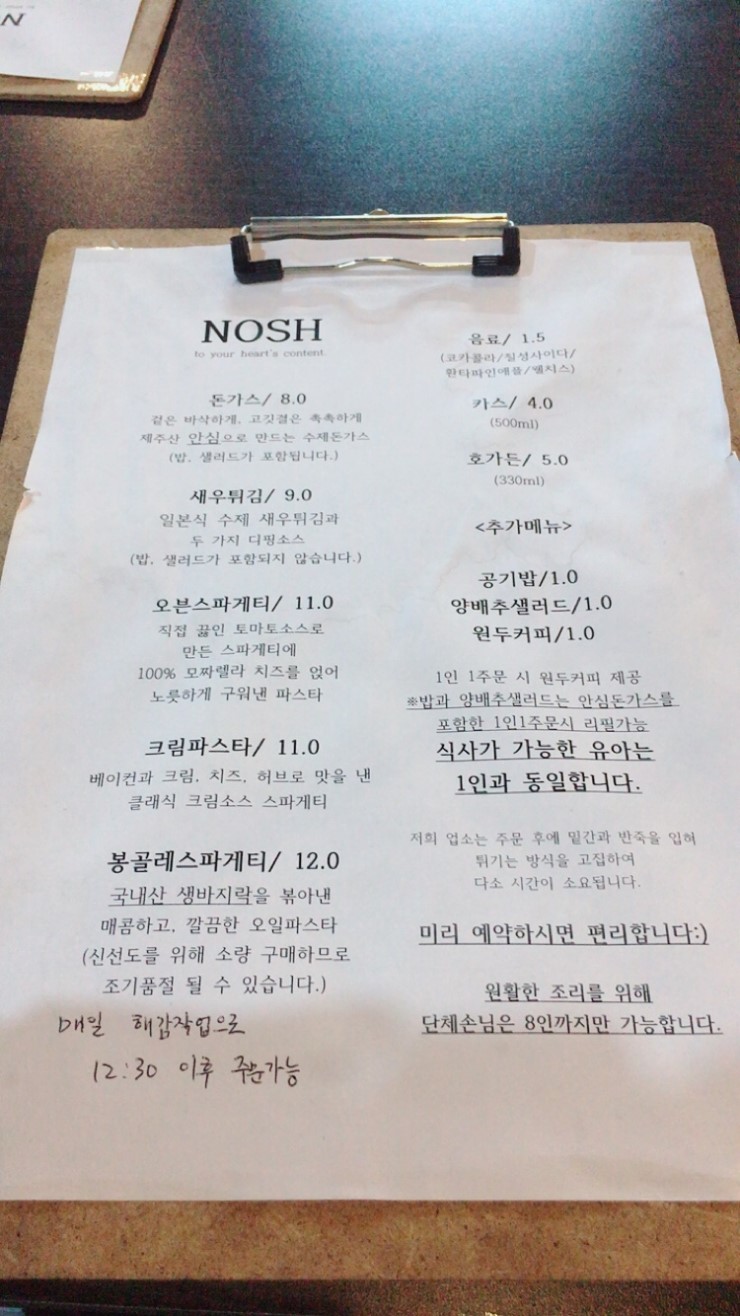 NOSH
to your heart's content.
돈가스/ 8.0
겉은 바삭하게, 고깃결은 촉촉하게
제주산 안심으로 만드는 수제돈가스
(밥, 샐러드가 포함됩니다.)
새우튀김/ 9.0
일본식 수제 새우튀김과
두 가지 디핑소스
(밥, 샐러드가 포함되지 않습니다.)
오븐스파게티/ 11.0
직접 끓인 토마토소스로
만든 스파게티에
100% 모짜렐라 치즈를 얹어
노릇하게 구워낸 파스타
크림파스타/ 11.0
베이컨과 크림, 치즈, 허브로 맛을 낸
클래식 크림소스 스파게티
봉골레스파게티/ 12.0
국내산 생바지락을 볶아낸
매콤하고, 깔끔한 오일파스타
(신선도를 위해 소량 구매하므로
조기품절 될 수 있습니다.)
매일 해감작업으로
12:30 이후 주문가능
음료/ 1.5
(코카콜라/칠성사이다/
환타파인애플/웰치스)
카스/ 4.0
(500ml)
호가든/ 5.0
(330ml)
<추가메뉴>
공기밥/1.0
양배추샐러드/1.0
원두커피/1.0
1인 1주문 시 원두커피 제공
※밥과 양배추샐러드는 안심돈가스를
포함한 1인1주문시 리필가능
식사가 가능한 유아는
1인과 동일합니다.
저희 업소는 주문 후에 밑간과 반죽을 입혀
튀기는 방식을 고집하여
다소 시간이 소요됩니다.
미리 예약하시면 편리합니다:)
원활한 조리를 위해
단체손님은 8인까지만 가능합니다.